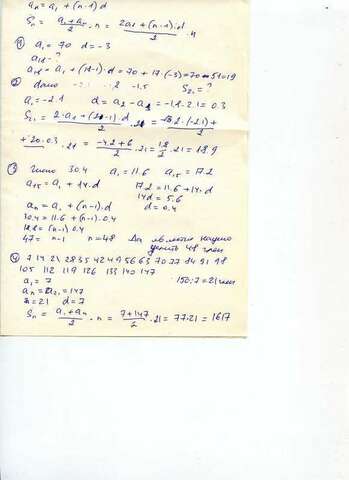 an = a1 + (n-1) d
Sn = (a1+an)/2 · n = (2a1 + (n-1)·d)/2 · n
① a1 = 70 d = -3
a18 - ?
a18 = a1 + (18-1)·d = 70 + 17·(-3) = 70-51 = 19
② дано -1,5 S21 = ?
a1 = -2.1 d = a2 - a1 = -1,8 - 2.1 = 0.3
S21 = (2·a1 + (21-1)·d)/2 · 21 = (2·(-2.1) +
+ 20·0.3)/2 · 21 = (-4.2+6)/2 · 21 = 1,8/2 · 21 = 18.9
③ число 30.4 a1 = 11.6 a15 = 17.2
a15 = a1 + 14·d 17.2 = 11.6 + 14·d
14d = 5.6
an = a1 + (n-1)·d d = 0.4
30.4 = 11.6 + (n-1)·0.4
18.8 = (n-1) 0.4
47 = n-1 n = 48 Да 48 член
④ 7 14 21 28 35 42 49 56 63 70 77 84 91 98
105 112 119 126 133 140 147
a1 = 7 150:7 = 21 член
an = a21 = 147
n = 21 d = 7
Sn = (a1+an)/2 · n = (7+147)/2 · 21 = 77·21 = 1617